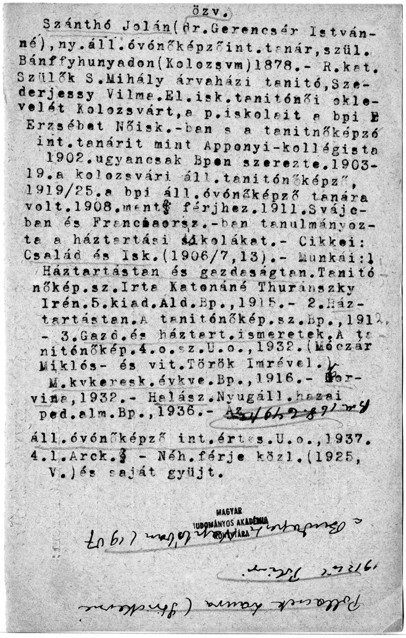 özv.
Szánthó Jolán(dr.Gerencsér Istvánné
né),ny.áll.óvónőképzőint.tanár,szül.
Bánffyhunyadon(Kolozsvm)1878.- R.kat.
Szülők S.Mihály árvaházi tanító,Sze-
derjessy Vilma.El.isk.tanitónői okle-
velét Kolozsvárt,a p.iskolait a bpi
Erzsébet Nőisk.-ban s a tanitnőképző
int.tanárit mint Apponyi-kollégista
1902.ugyancsak Bpen szerezte.1903-
19.a kolozsvári áll.tanitónőképző,
1919/25.a bpi áll.óvónőképző tanára
volt.1908.ment férjhez.1911.Svájc-
ban és Franciaorsz.-ban tanulmányoz-
ta a háztartási iskolákat.- Cikkei:
Család és Isk.(1906/7,13).- Munkái:1
Háztartástan és gazdaságtan.Tanitó
nőkép.sz.Irta Katonáné Thuránszky
Irén.5.kiad.Ald.Bp.,1915.- 2.Ház-
tartástan.A tanitónőkép.sz.Bp.,191
- 3.Gazd.és háztart.ismeretek.A ta
nitónőkép.4.o.sz.U.o.,1932.(Móczár
Miklós- és vit.Török Imrével.)
M.kvkeresk.évkve.Bp.,1916.- Cor-
vina,1932.- Halász.Nyugáll.hazai
ped.alm.Bp.,1936.-
áll.óvónőképző int.értes.U.o.,1937.
4.l.Arck.- Néh.férje közl.(1925,
V.)és saját gyüjt.
MAGYAR
TUDOMÁNYOS AKADÉMIA
KÖNYVTÁRA